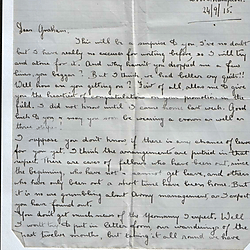 24/9/15
Dear Graham,
This will be a surprise to you I've no doubt
but I have really no excuses for writing before so I will try
and atone for it. And why haven't you dropped me a few
lines you beggar? But I think we had better cry quits!
Well how are you getting on? First of all allow me to give
you the heartiest of congratulations on your promotion
I did not know until I came home last week. Good
luck to you & may you soon be wearing a crown as well as
three stars.
I suppose you don't know if there is any chance of leave
for you. I think the arrangements are putrid in that
respect. There are cases of fellows who have been out since
the beginning, who have not got leave, and others
who have only been out a short time have been home. But
it is no use grousing about Army management as I expect
you have found out.
You don't get much news of the Yeomanry I expect. Well
I will try to put in letter form our wanderings of the
last twelve months but doing it all round is hard